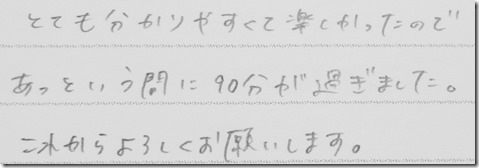 とても分かりやすくて楽しかったので
あっという間に90分が過ぎました。
これからよろしくお願いします。